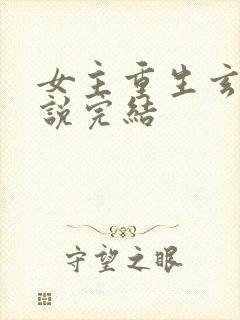 女主重生玄
說完結
守望之眼